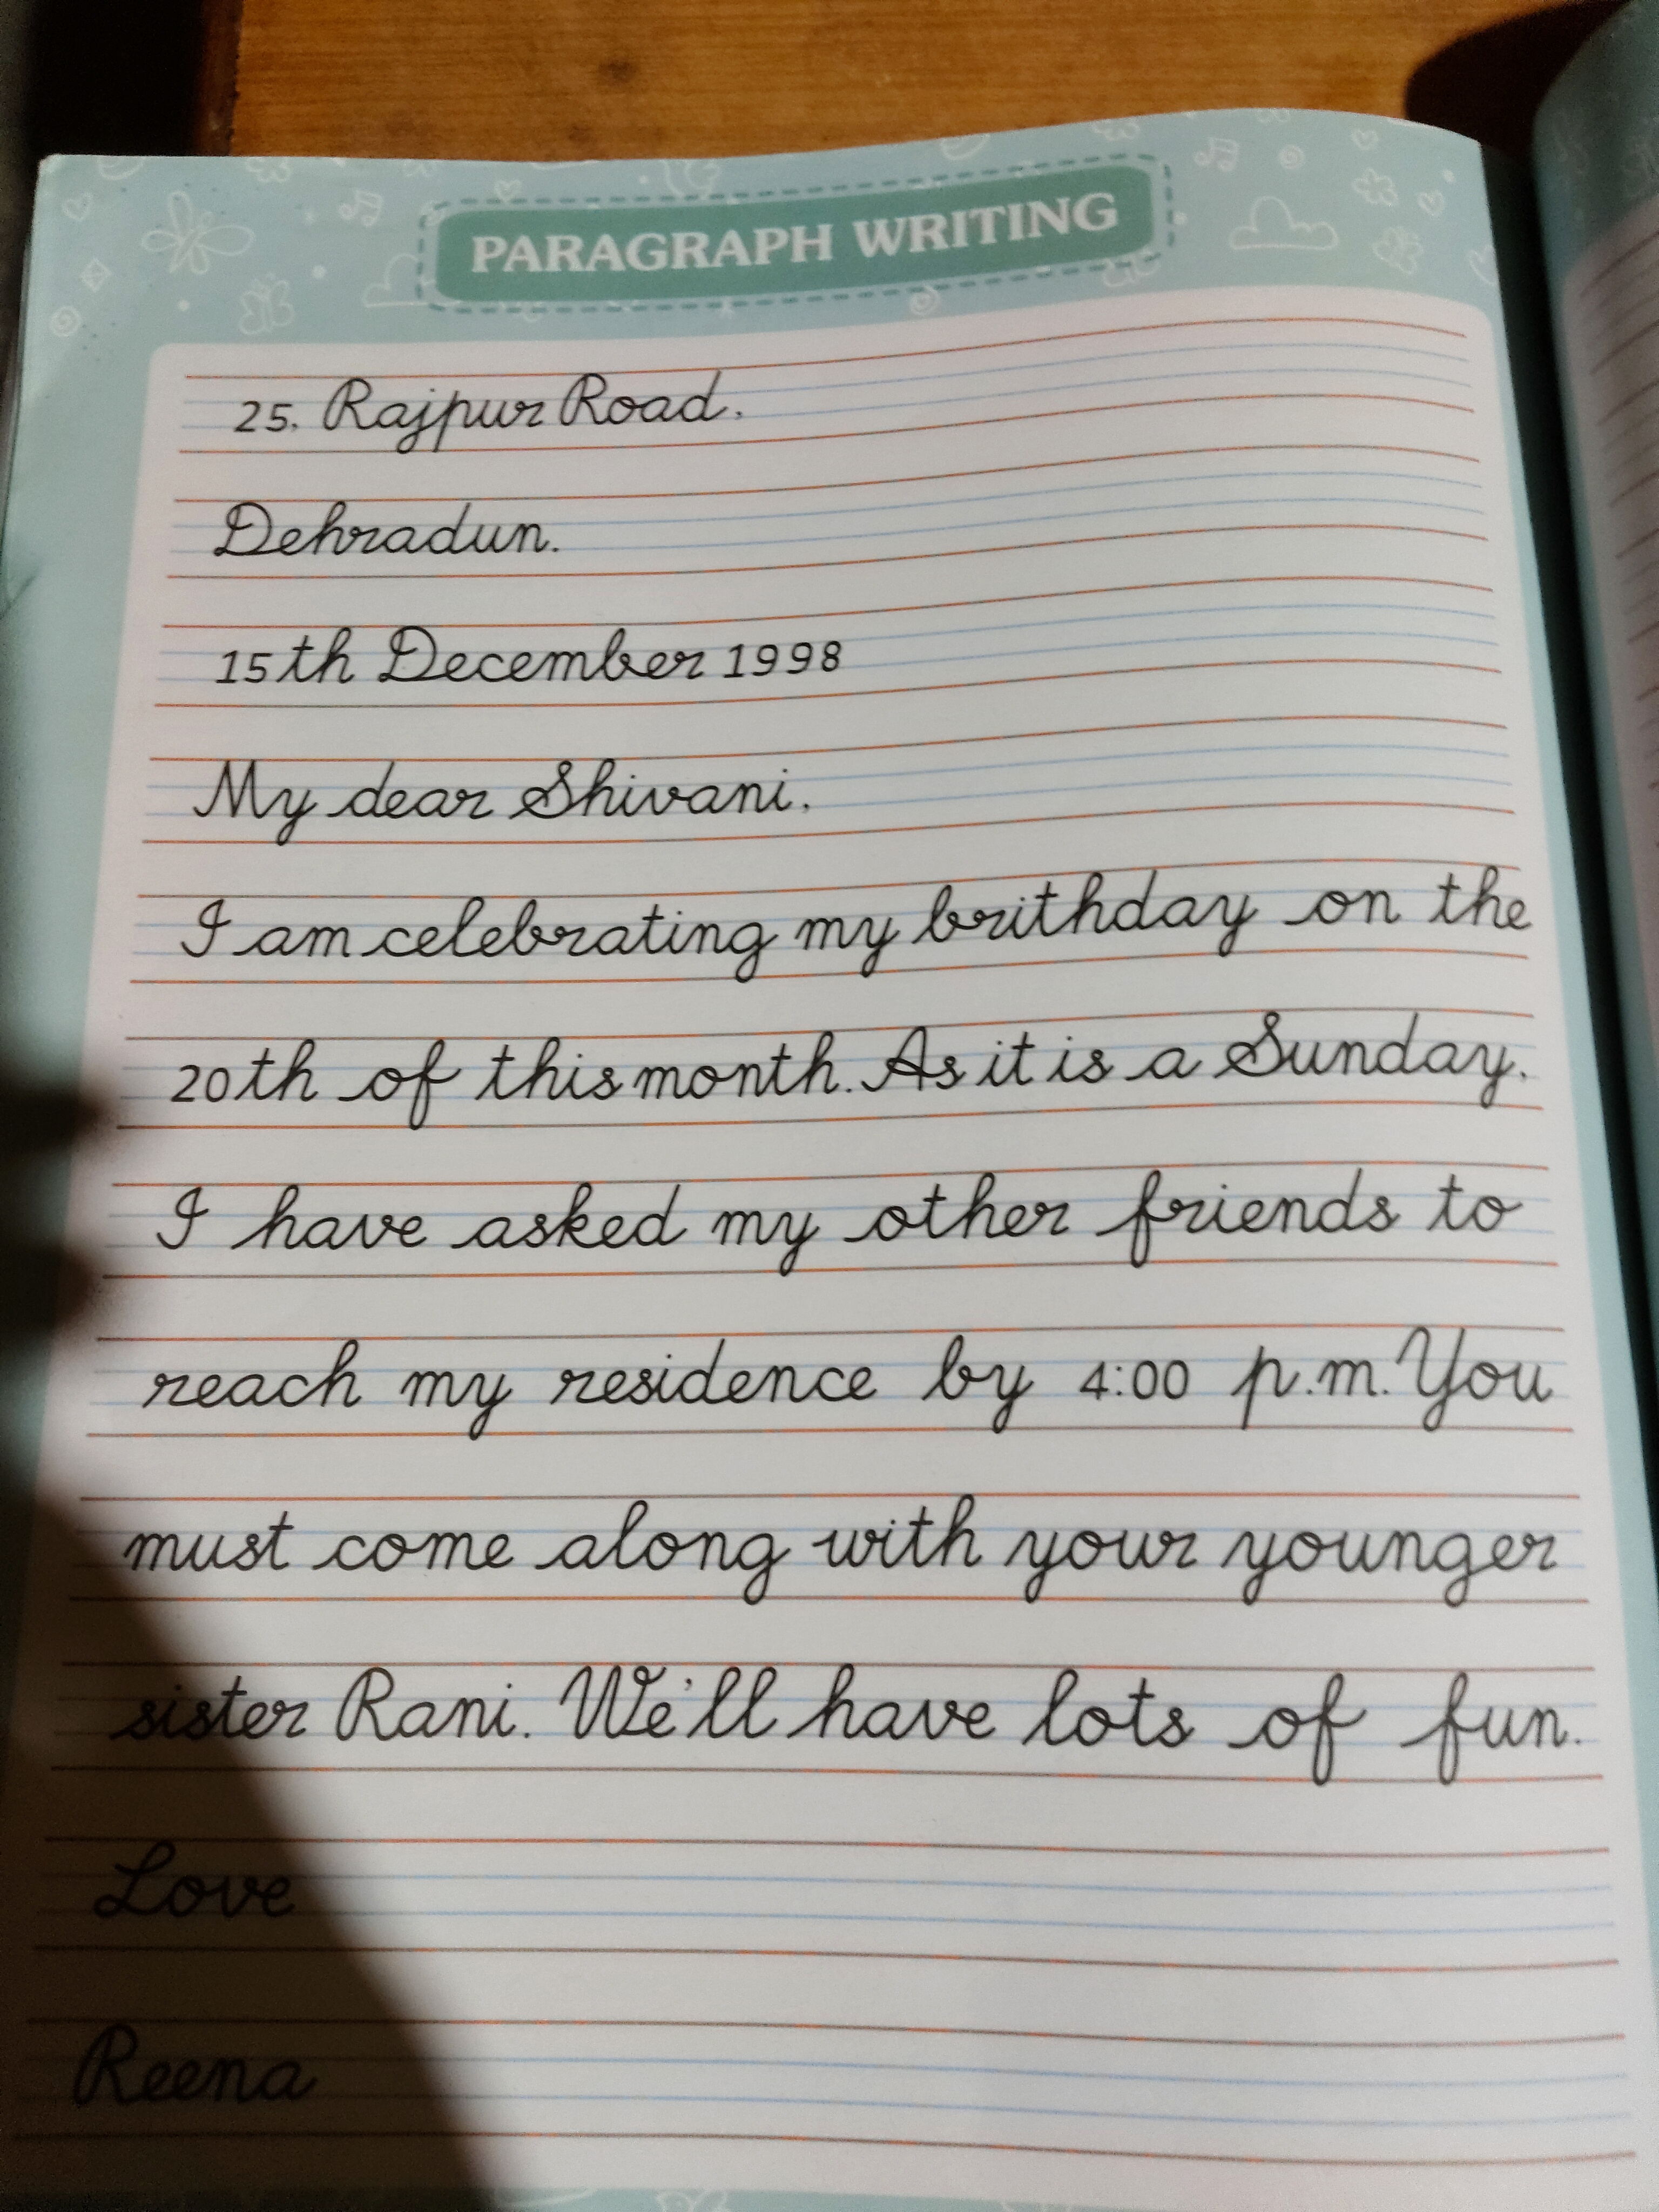 PARAGRAPH WRITING
25. Rajpur Road.
Dehradun.
15th December 1998
My dear Shivani.
I am celebrating my brithday on the
20th of this month. As it is a Sunday.
I have asked my other friends to
reach my residence by 4:00 p.m. You
must come along with your younger
sister Rani. We'll have lots of fun.
Love
Reena